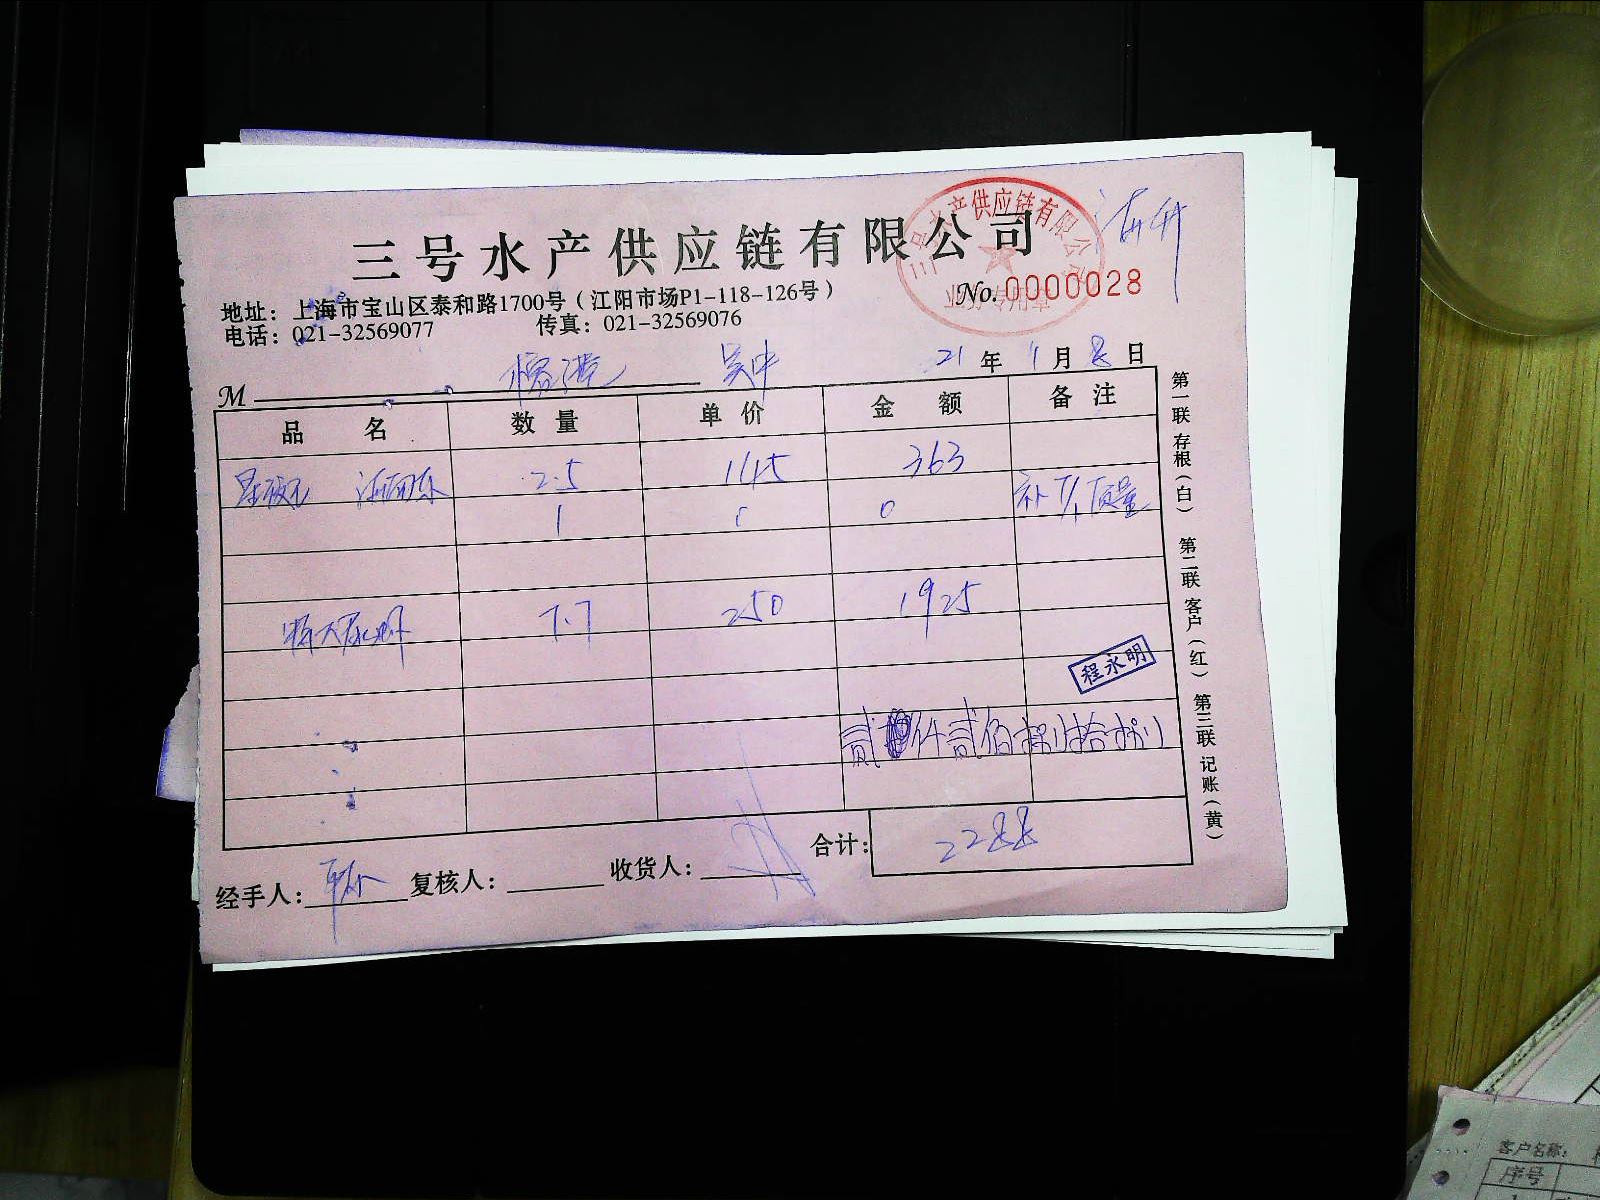 三号水产供应链有限公司
三号水产供应链有限公司
业务专用章
No. 0000028
地址：上海市宝山区泰和路1700号（江阳市场P1-118-126号）
电话：021-32569077 传真：021-32569076
M 吴中 21年 1月 8日
品名 数量 单价 金额 备注
2.5 145 363
1 0 0 补 质量
7.7 250 1925
程永明
贰仟贰佰捌拾捌
合计： 2288
经手人： 复核人： 收货人：
第一联 存根（白） 第二联 客户（红） 第三联 记账（黄）
客户名称：
序号